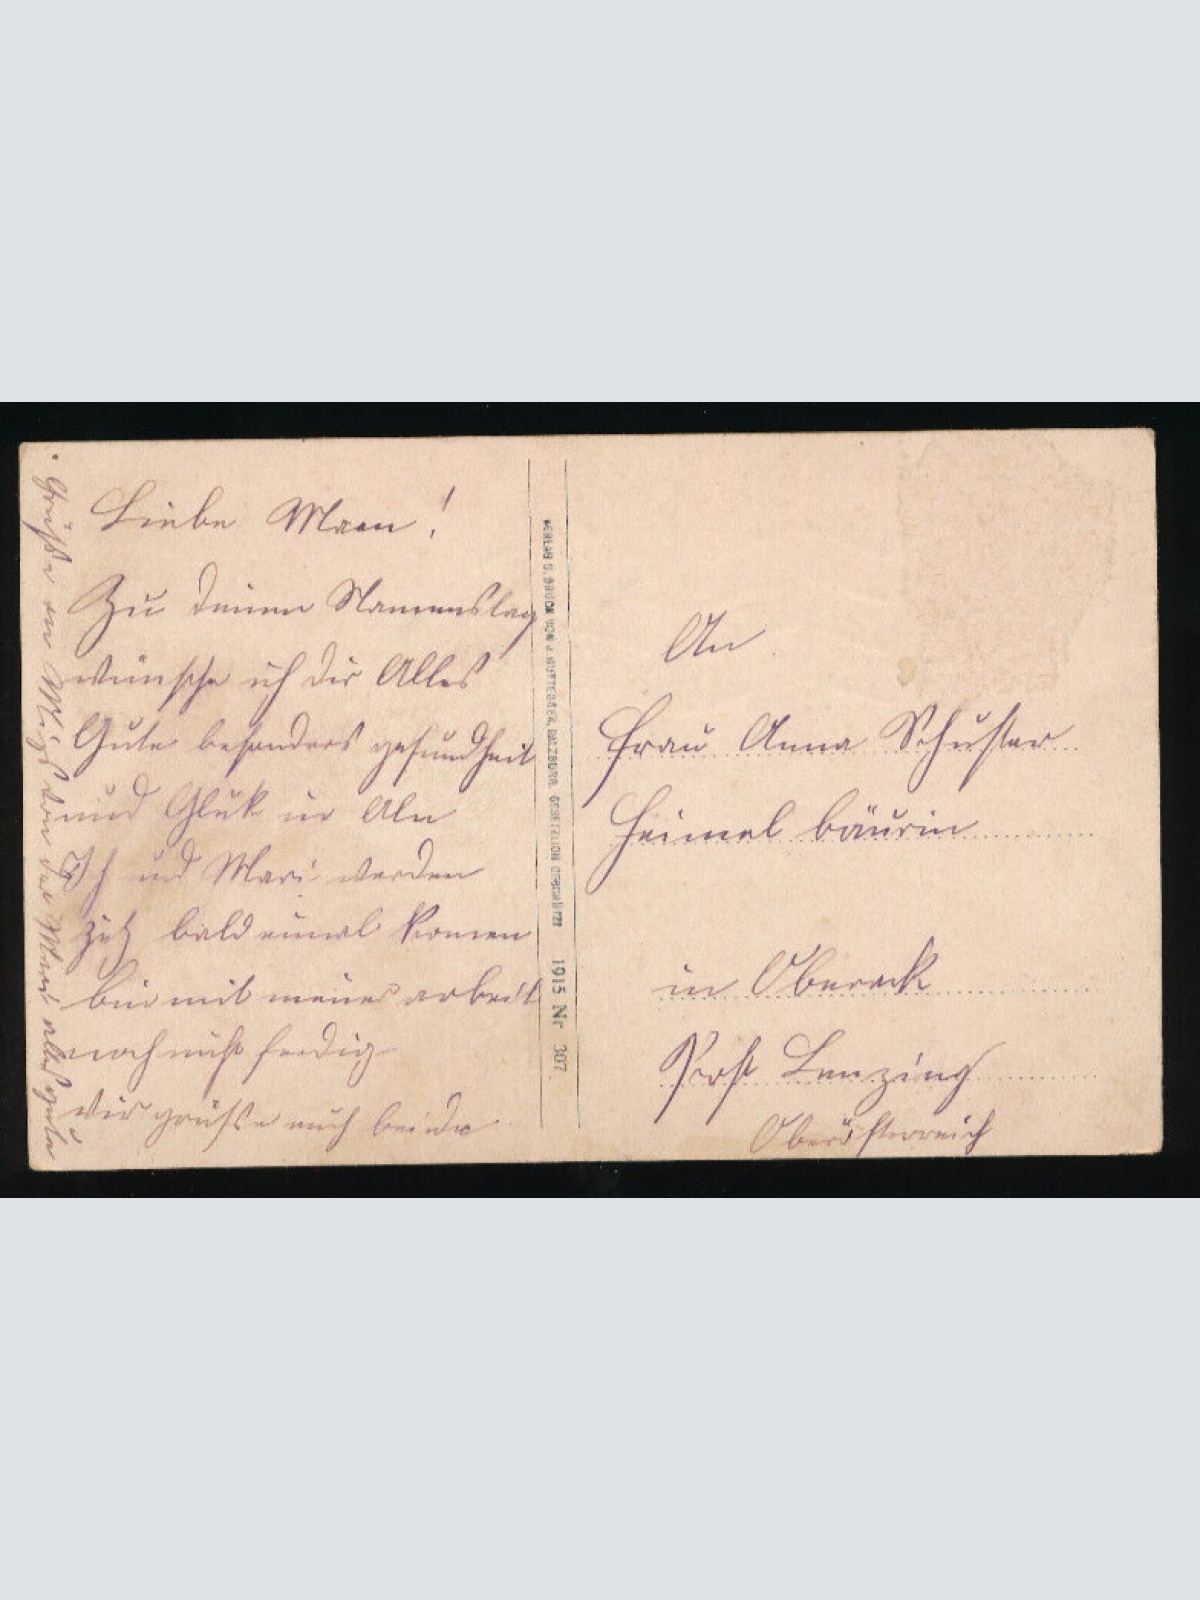 Liebe Maan!
Zu deinen Namenstag
wünsche ich dir Alles
Gute besonders gesundheit
und Glük in Aln
Ich und Mari werden
bald einmal komen
bin mit meiner arbeit
noch nicht ferdig
Wir grüsse euch beide
Grüsse an von der Mari alles gute
VERLAG U. DRUCK VON SALZBURG. GESETZLICH GESCHÜTZT 1915 Nr 307
An
Frau Anna Schuster
Heimel bäurin
in Oberack
Post Lenzing
Oberösterreich